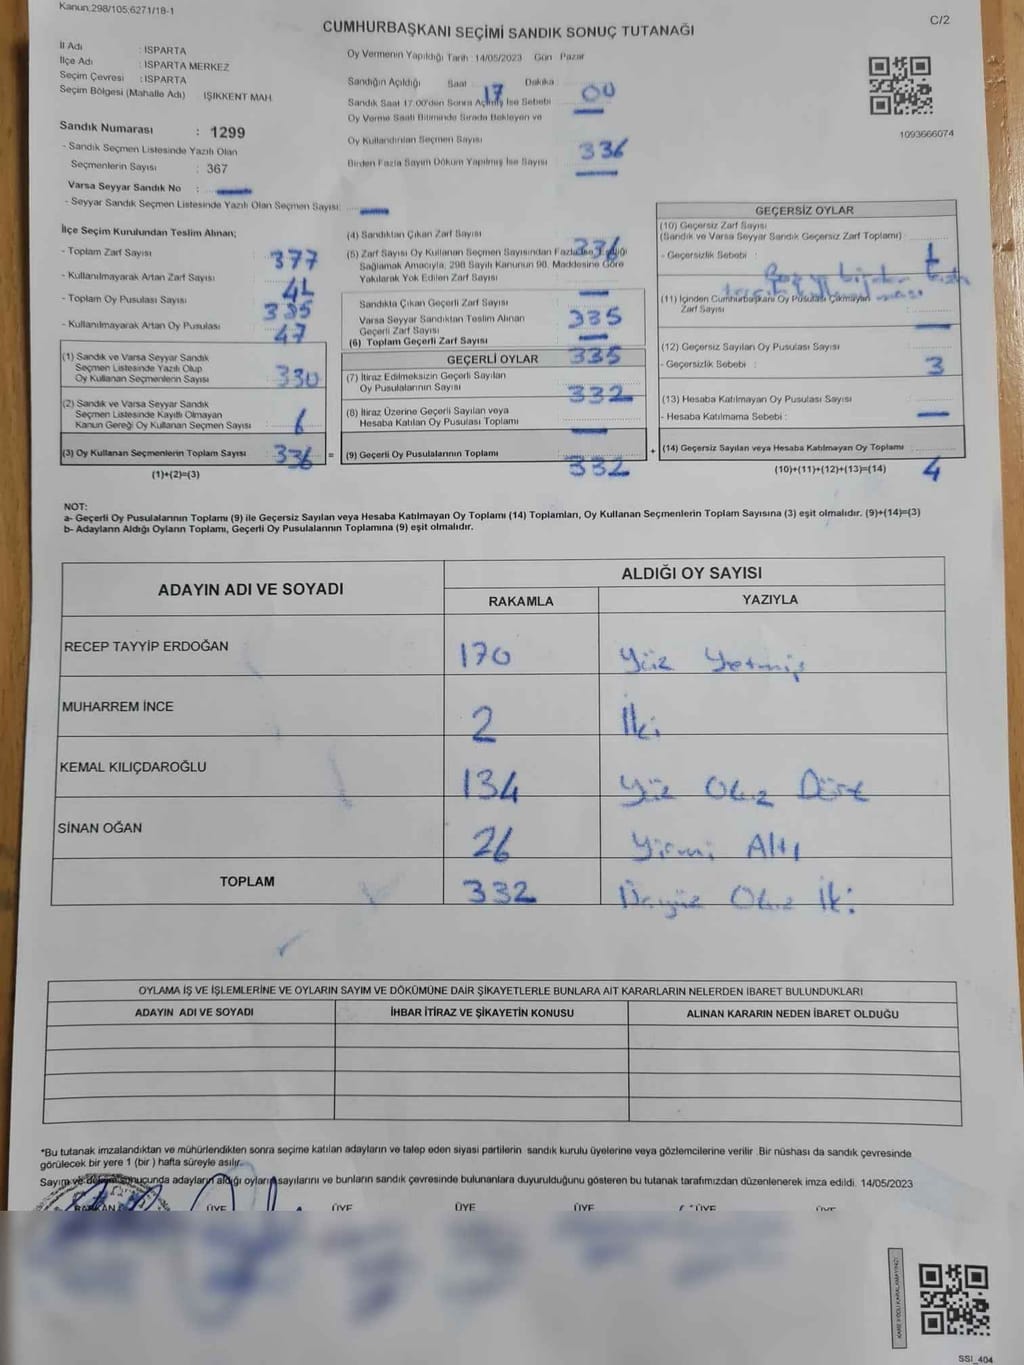 Kanun:298/105;6271/18-1
C/2
CUMHURBAŞKANI SEÇİMİ SANDIK SONUÇ TUTANAĞI
İl Adı : ISPARTA
İlçe Adı : ISPARTA MERKEZ
Seçim Çevresi : ISPARTA
Seçim Bölgesi (Mahalle Adı) IŞIKKENT MAH.
Sandık Numarası : 1299
- Sandık Seçmen Listesinde Yazılı Olan
Seçmenlerin Sayısı : 367
Varsa Seyyar Sandık No :
- Seyyar Sandık Seçmen Listesinde Yazılı Olan Seçmen Sayısı:
Oy Vermenin Yapıldığı Tarih :14/05/2023 Gün Pazar
Sandığın Açıldığı Saat 17 Dakika 00
Sandık Saat 17:00'den Sonra Açılmış İse Sebebi
Oy Verme Saati Bitiminde Sırada Bekleyen ve
Oy Kullandırılan Seçmen Sayısı 336
Birden Fazla Sayım Döküm Yapılmış İse Sayısı
1093666074
İlçe Seçim Kurulundan Teslim Alınan;
- Toplam Zarf Sayısı 377
- Kullanılmayarak Artan Zarf Sayısı 41
- Toplam Oy Pusulası Sayısı
- Kullanılmayarak Artan Oy Pusulası 47
(1) Sandık ve Varsa Seyyar Sandık
Seçmen Listesinde Yazılı Olup
Oy Kullanan Seçmenlerin Sayısı 330
(2) Sandık ve Varsa Seyyar Sandık
Seçmen Listesinde Kayıtlı Olmayan
Kanun Gereği Oy Kullanan Seçmen Sayısı 6
(3) Oy Kullanan Seçmenlerin Toplam Sayısı 336 =
(1)+(2)=(3)
(4) Sandıktan Çıkan Zarf Sayısı 336
(5) Zarf Sayısı Oy Kullanan Seçmen Sayısından Fazla ise Eşitliği
Sağlamak Amacıyla, 298 Sayılı Kanunun 98. Maddesine Göre
Yakılarak Yok Edilen Zarf Sayısı
Sandıkta Çıkan Geçerli Zarf Sayısı 335
Varsa Seyyar Sandıktan Teslim Alınan
Geçerli Zarf Sayısı
(6) Toplam Geçerli Zarf Sayısı 335
GEÇERLİ OYLAR
(7) İtiraz Edilmeksizin Geçerli Sayılan
Oy Pusulalarının Sayısı 332
(8) İtiraz Üzerine Geçerli Sayılan veya
Hesaba Katılan Oy Pusulası Toplamı
(9) Geçerli Oy Pusulalarının Toplamı 332 +
GEÇERSİZ OYLAR
(10) Geçersiz Zarf Sayısı
(Sandık ve Varsa Seyyar Sandık Geçersiz Zarf Toplamı) 1
- Geçersizlik Sebebi :
(11) İçinden Cumhurbaşkanı Oy Pusulası Çıkmayan
Zarf Sayısı
(12) Geçersiz Sayılan Oy Pusulası Sayısı
- Geçersizlik Sebebi : 3
(13) Hesaba Katılmayan Oy Pusulası Sayısı
- Hesaba Katılmama Sebebi :
(14) Geçersiz Sayılan veya Hesaba Katılmayan Oy Toplamı
(10)+(11)+(12)+(13)=(14) 4
NOT:
a- Geçerli Oy Pusulalarının Toplamı (9) ile Geçersiz Sayılan veya Hesaba Katılmayan Oy Toplamı (14) Toplamları, Oy Kullanan Seçmenlerin Toplam Sayısına (3) eşit olmalıdır. (9)+(14)=(3)
b- Adayların Aldığı Oyların Toplamı, Geçerli Oy Pusulalarının Toplamına (9) eşit olmalıdır.
ADAYIN ADI VE SOYADI
ALDIĞI OY SAYISI
RAKAMLA YAZIYLA
RECEP TAYYİP ERDOĞAN 170 Yüz Yetmiş
MUHARREM İNCE 2 İki
KEMAL KILIÇDAROĞLU 134 Yüz Otuz Dört
SİNAN OĞAN 26 Yirmi Altı
TOPLAM 332 Üçyüz Otuz İki
OYLAMA İŞ VE İŞLEMLERİNE VE OYLARIN SAYIM VE DÖKÜMÜNE DAİR ŞİKAYETLERLE BUNLARA AİT KARARLARIN NELERDEN İBARET BULUNDUKLARI
ADAYIN ADI VE SOYADI İHBAR İTİRAZ VE ŞİKAYETİN KONUSU ALINAN KARARIN NEDEN İBARET OLDUĞU
*Bu tutanak imzalandıktan ve mühürlendikten sonra seçime katılan adayların ve talep eden siyasi partilerin sandık kurulu üyelerine veya gözlemcilerine verilir. Bir nüshası da sandık çevresinde
görülecek bir yere 1 (bir ) hafta süreyle asılır.
Sayım ve döküm sonucunda adayların aldığı oyların sayılarını ve bunların sandık çevresinde bulunanlara duyurulduğunu gösteren bu tutanak tarafımızdan düzenlenerek imza edildi. 14/05/2023
BAŞKAN ÜYE ÜYE ÜYE ÜYE ÜYE ÜYE
SSI_404